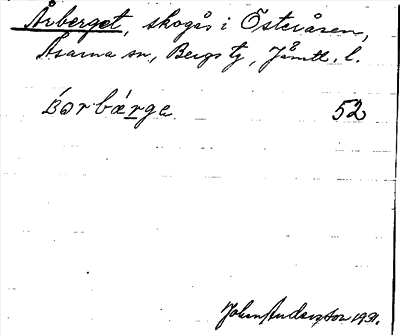 Årberget, skogås i Österåsen,
Åsarna sn, Bergs tg, Jämtl. l.
bərbærga 52
John Anderzson 1931.